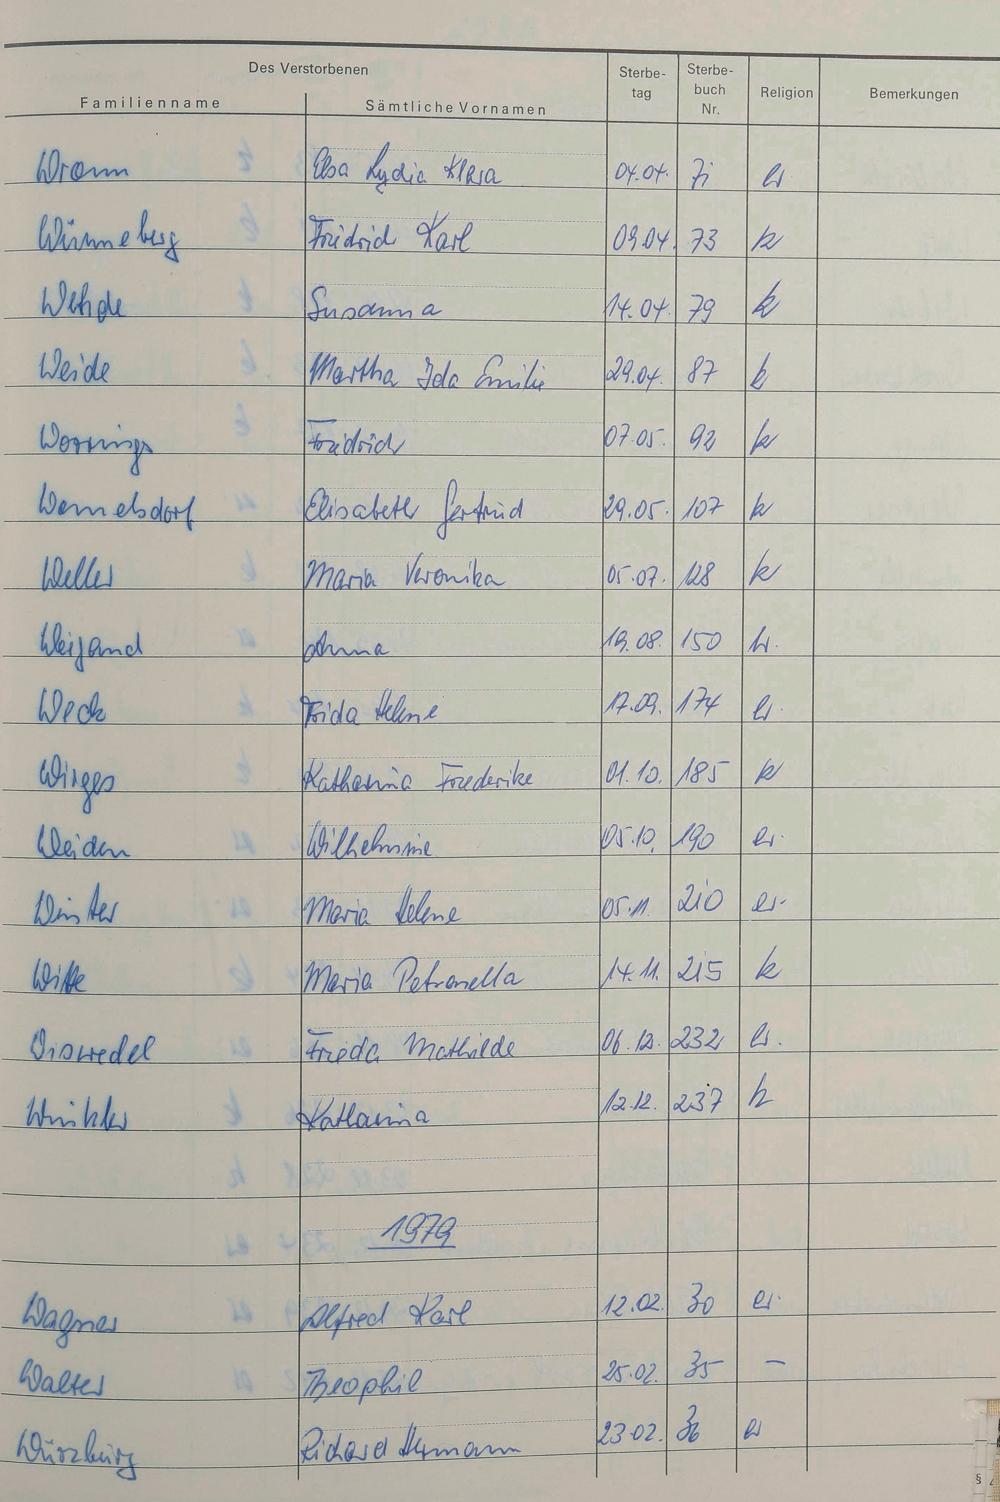 Des Verstorbenen
Familienname Sämtliche Vornamen Sterbe-tag Sterbe-buch Nr. Religion Bemerkungen
Wramm Elsa Lydia Klara 04.04. 71 ev
Wünneberg Friedrich Karl 09.04. 73 k
Wehde Susanna 14.04. 79 k
Weide Martha Ida Emilie 29.04. 87 k
Friedrich 07.05. 92 k
Wermelsdorf Elisabeth Gertrud 29.05. 107 k
Weller Maria Veronika 05.07. 128 k
Weigand Anna 19.08. 150 k.
Weck Frida Helene 17.09. 174 ev
Wirges Katharina Friederike 01.10. 185 k
Weiden Wilhelmine 05.10. 190 ev.
Winter Maria Helene 05.11. 210 ev.
Witte Maria Petronella 14.11. 215 k
Frieda Mathilde 06.12. 232 ev.
Winkler Katharina 12.12. 237 k
1979
Wagner Alfred Karl 12.02. 30 ev.
Walter Theophil 25.02. 35 –
Würzburg Richard Hermann 23.02. 36 ev
§